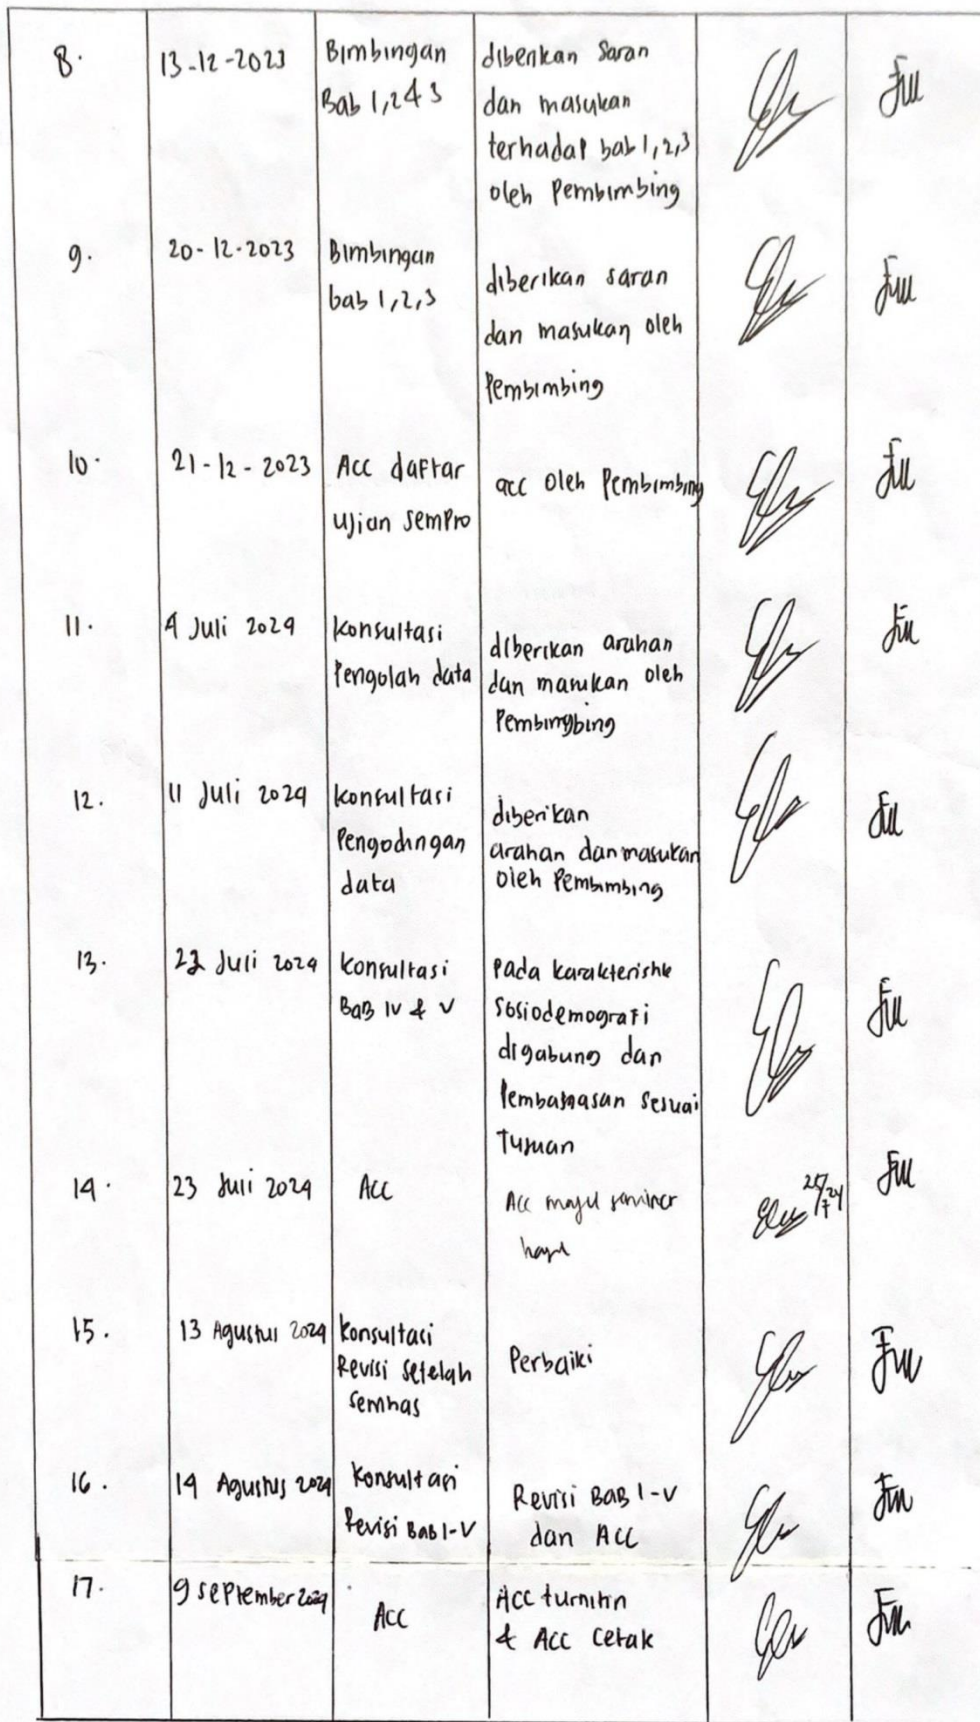 8.
13-12-2023
Bimbingan
Bab 1,2 & 3
diberikan saran
dan masukan
terhadap bab 1,2,3
oleh Pembimbing
9.
20-12-2023
Bimbingan
bab 1,2,3
diberikan saran
dan masukan oleh
Pembimbing
10.
21-12-2023
Acc daftar
ujian sempro
acc oleh Pembimbing
11.
4 Juli 2024
Konsultasi
Pengolah data
diberikan arahan
dan masukan oleh
Pembingbing
12.
11 Juli 2024
Konsultasi
Pengodingan
data
diberikan
arahan dan masukan
oleh Pembimbing
13.
22 Juli 2024
Konsultasi
BAB IV & V
Pada karakteristik
Sosiodemografi
digabung dan
Pembahasan sesuai
Tujuan
14.
23 Juli 2024
Acc
Acc maju seminar
hasil
15.
13 Agustus 2024
Konsultasi
Revisi setelah
semhas
Perbaiki
16.
14 Agustus 2024
Konsultasi
Revisi BAB I-V
Revisi BAB I-V
dan ACC
17.
9 September 2024
ACC
ACC turnitin
& ACC cetak